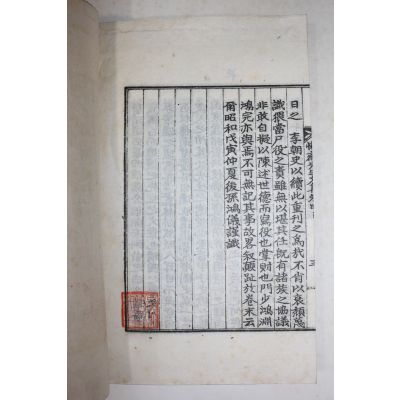 日之 李朝史以續此重刊之爲我不肯以衰頹蔑
識猥當尸役之責雖無以堪其任旣有諸族之協議
非敢自擬以陳述世德而寫役也韋則也門少鴻淵
鴻完亦與焉不可無記其事故畧叙顚趾於卷末云
爾昭和戊寅仲夏後孫鴻儀謹識